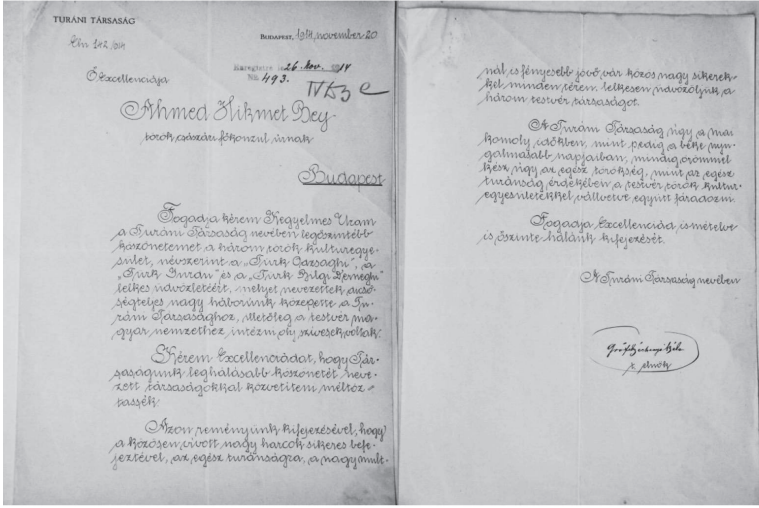 TURÁNI TÁRSASÁG
BUDAPEST, 1914, november 20
Ő Excellenciája
Enregistré le 26. Nov. 1914
No. 493.
Ahmed Hikmet Bey
török császári főkonzul úrnak
Budapest
Fogadja kérem Kegyelmes Uram
a Turáni Társaság nevében legőszintébb
köszönetemet a három török kulturegye-
sület, névszerint a „Türk Odzsaghi", a
„Türk Gudsü" és a „Türk Bilgi Derneghi"
lelkes üdvözletéért, melyet nevezettek dicső-
ségteljes nagy háborúnk közepette a Tu-
ráni Társasághoz, illetőleg a testvér ma-
gyar nemzethez intézni oly szívesek voltak.
Kérem Excellenciádat, hogy Tár-
saságunk leghálásabb köszönetét neve-
zett társaságokkal közvetíteni méltóz-
tassék
Azon reményünk kifejezésével, hogy
a közösen vívott nagy harcok sikeres befe-
jeztével, az egész turánságra, a nagy mult-
nál is fényesebb jövő vár közös nagy sikerek-
kel minden téren. lelkesen üdvözöljük a
három testvér társaságot.
A Turáni Társaság úgy a mai
komoly időkben, mint pedig a béke nyu-
galmasabb napjaiban, mindig örömmel
kész úgy az egész törökség, mint az egész
turánság érdekében a testvér török kultur-
egyesületekkel vállvetve együtt fáradozni.
Fogadja Excellenciád ismételve
is őszinte hálánk kifejezését.
A Turáni Társaság nevében
Gróf Széchenyi Béla
t. elnök